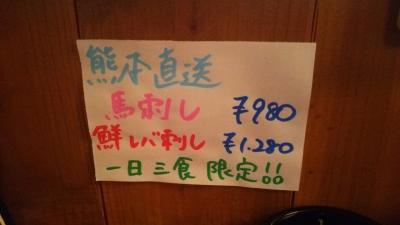 熊本直送
馬刺し ¥980
鮮レバ刺し ¥1.280
一日三食限定!!